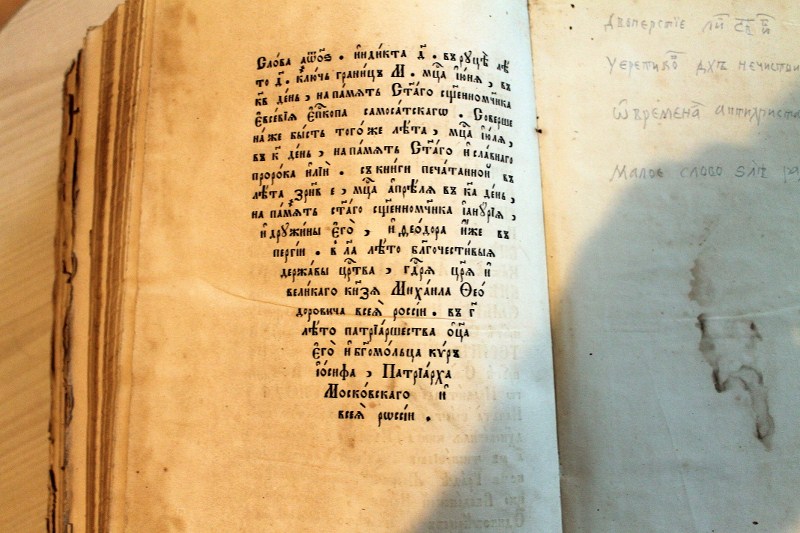 Слова аѿоѕ. и҆нди́кта д҃. в̾ руцѣ̀ лѣ
то д҃. клю́чь грани́цъ М. мц҃а і҆ю́нѧ, в̾
к҃в де́нь, на па́мѧть Ст҃а́го сщ҃енномч҃ника
Є҆ѵсе́вїѧ є҆пⷭ҇копа самоса́тскагѡ. Соверше
на́ же бы́сть того́же лѣ́та, мц҃а і҆ю́лѧ,
в̾ к҃ де́нь, на па́мѧть Ст҃а́го и҆ сла́внаго
проро́ка и҆лїѝ. съ кни́ги печа́танной в̾
лѣ́та зр҃нв е, мц҃а а҆прѣ́лѧ в̾ к҃а де́нь,
на па́мѧть ст҃а́го сщ҃енномч҃ника і҆аннꙋ́рїѧ,
и҆ дрꙋжи́ны є҆гѡ̀, и҆ ѳео́дора и҆́же въ
перги́и. в̾ л҃а лѣ́то бл҃гочести́выѧ
держа́вы црⷭ҇тва, гдⷭ҇рѧ цр҃ѧ̀ и҆
вели́каго кн҃зѧ Михаи́ла Ѳео́
доровича всеѧ̀ россі́и. въ г҃
лѣ́то патрїа́ршества ѻ҆ц҃а̀
є҆гѡ̀ и҆ бг҃омо́льца кѵ́ръ
і҆ѡ́сифа, Патрїа́рха
Моско́вскаго и҆
всеѧ̀ рѡссі́и.
Двоперстїе ли
У еретиковъ дх҃ъ нечистый
Ѡ времена антихриста
Малое слово ѕл҃і